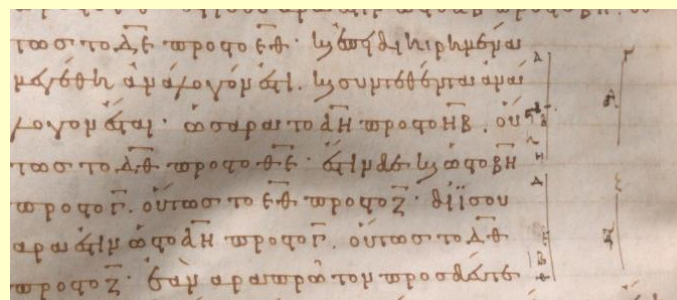 τως τὸ ΔΕ πρὸς τὸ ΕΘ· καὶ ἐπεὶ διηιρημένα
μεγέθη ἀνάλογόν ἐστι. καὶ συντεθέντα ἀνά
λογον ἔσται· ὡς ἄρα τὸ ΑΗ πρὸς τὸ ΗΒ. οὕ
τως τὸ ΔΘ πρὸς τὸ ΘΕ· ἔστιν δὲ καὶ ὡς τὸ ΒΗ
πρὸς τὸ Γ. οὕτως τὸ ΕΘ πρὸς τὸ Ζ· διΐσου
ἄρα ἐστὶν ὡς τὸ ΑΗ πρὸς τὸ Γ. οὕτως τὸ ΔΘ
πρὸς τὸ Ζ· ἐὰν ἄρα πρῶτον πρὸς δεύτε